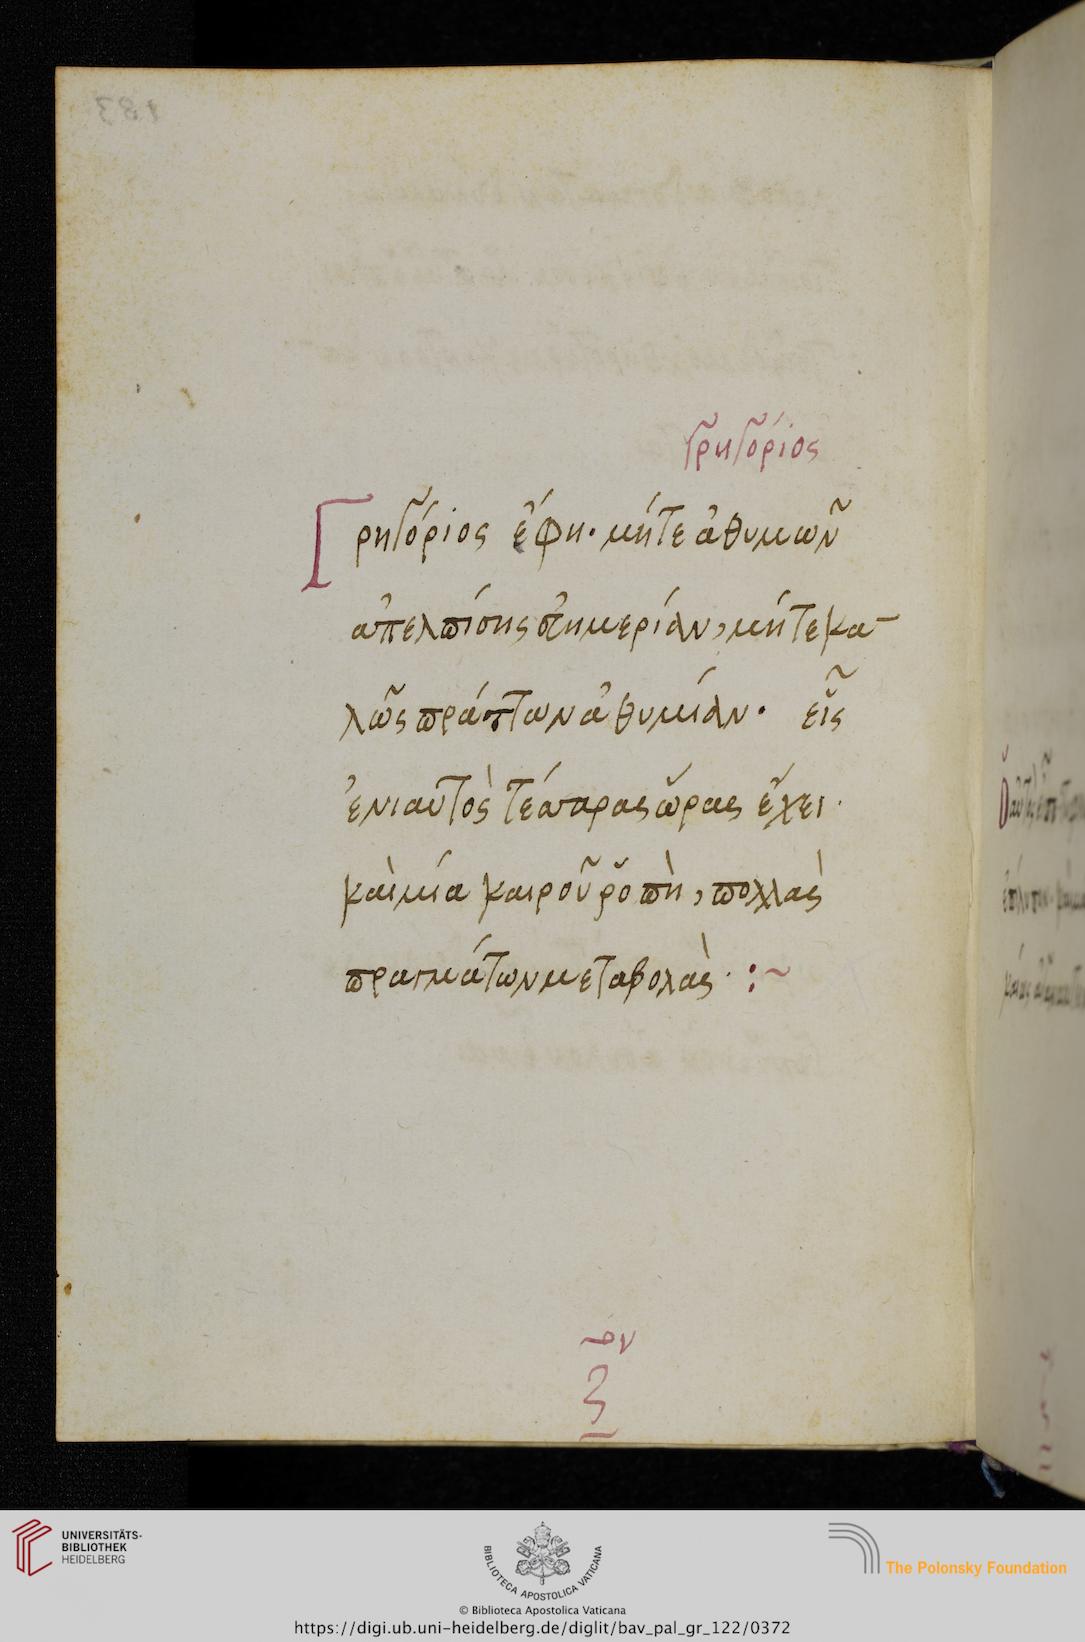 Γρηγόριος
Γρηγόριος ἔφη· μήτε ἀθυμῶν
ἀπελπίσης εὐημερίαν, μήτε κα-
λῶς πράττων ἀθυμίαν· εἷς
ἐνιαυτὸς τέσσαρας ὥρας ἔχει·
καὶ μία καιροῦ ῥοπὴ, πολλὰς
πραγμάτων μεταβολὰς· :~
UNIVERSITÄTS-
BIBLIOTHEK
HEIDELBERG
BIBLIOTECA APOSTOLICA VATICANA
The Polonsky Foundation
© Biblioteca Apostolica Vaticana
https://digi.ub.uni-heidelberg.de/diglit/bav_pal_gr_122/0372